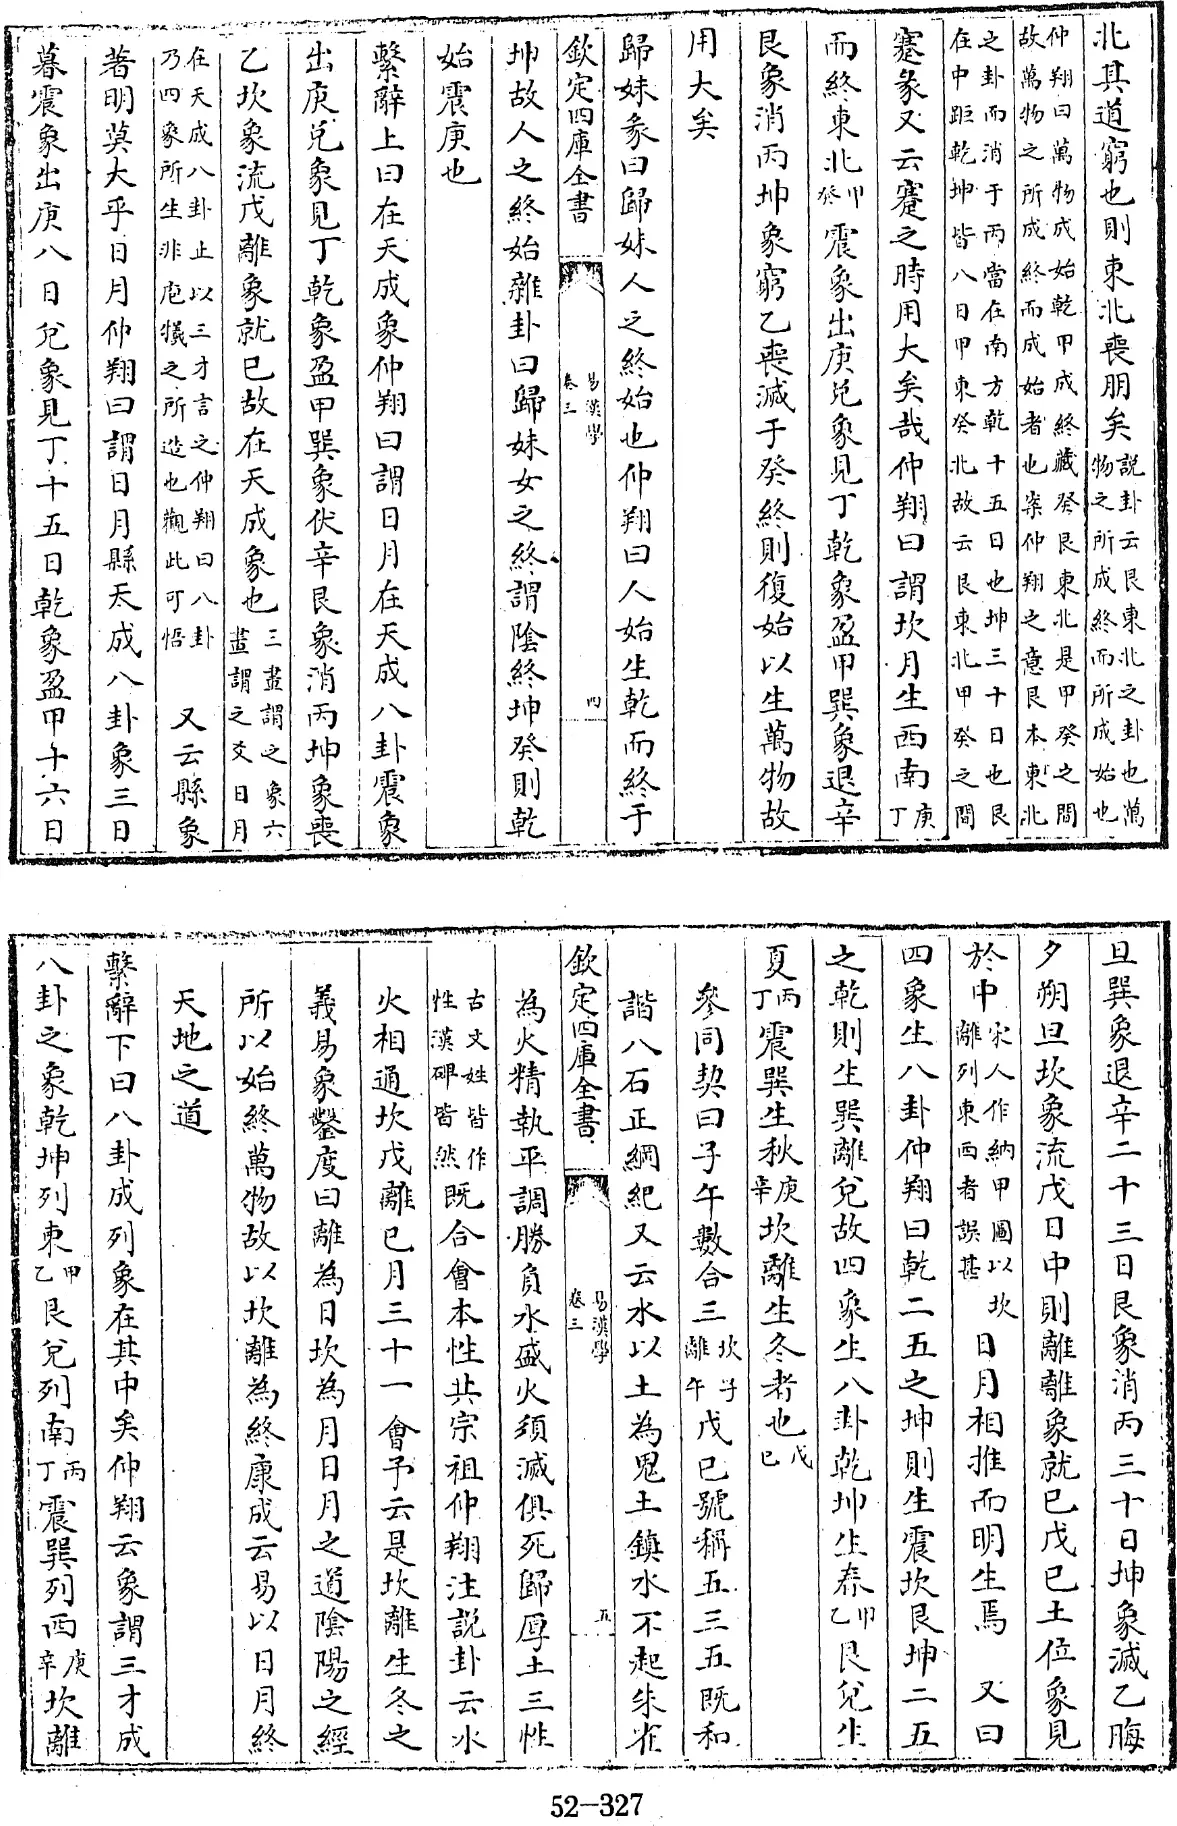 北其道窮也則東北喪朋矣說卦云艮東北之卦也萬物之所成終而所成始也
仲翔曰萬物成始乾甲成終藏癸艮東北是甲癸之間
故萬物之所成終而成始者也案仲翔之意艮本東北
之卦而消于丙當在南方乾十五日也坤三十日也艮
在中距乾坤皆八日甲東癸北故云艮東北甲癸之間
蹇彖又云蹇之時用大矣哉仲翔曰謂坎月生西南庚丁
而終東北甲癸震象出庚兌象見丁乾象盈甲巽象退辛
艮象消丙坤象窮乙喪滅于癸終則復始以生萬物故
用大矣
歸妹彖曰歸妹人之終始也仲翔曰人始生乾而終于
欽定四庫全書 易漢學 卷三 四
坤故人之終始雜卦曰歸妹女之終謂陰終坤癸則乾
始震庚也
繫辭上曰在天成象仲翔曰謂日月在天成八卦震象
出庚兌象見丁乾象盈甲巽象伏辛艮象消丙坤象喪
乙坎象流戊離象就已故在天成象也三畫謂之象六畫謂之爻日月
在天成八卦止以三才言之仲翔曰八卦乃四象所生非庖犧之所造也觀此可悟 又云縣象
著明莫大乎日月仲翔曰謂日月縣天成八卦象三日
暮震象出庚八日兌象見丁十五日乾象盈甲十六日
旦巽象退辛二十三日艮象消丙三十日坤象滅乙晦
夕朔旦坎象流戊日中則離離象就已戊已土位象見
於中宋人作納甲圖以坎離列東西者誤甚 日月相推而明生焉 又曰
四象生八卦仲翔曰乾二五之坤則生震坎艮坤二五
之乾則生巽離兌故四象生八卦乾坤生春甲乙艮兌生
夏丙丁震巽生秋庚辛坎離生冬者也戊已
參同契曰子午數合三坎子離午戊已號稱五三五既和
諧八石正綱紀又云水以土為鬼土鎮水不起朱雀
欽定四庫全書 易漢學 卷三 五
為火精執平調勝負水盛火須滅俱死歸厚土三性
古文姓皆作性漢碑皆然既合會本性共宗祖仲翔注說卦云水
火相通坎戊離已月三十一會予云是坎離生冬之
義易象鑿度曰離為日坎為月日月之道陰陽之經
所以始終萬物故以坎離為終康成云易以日月終
天地之道
繫辭下曰八卦成列象在其中矣仲翔云象謂三才成
八卦之象乾坤列東甲乙艮兌列南丙丁震巽列西庚辛坎離
52-327